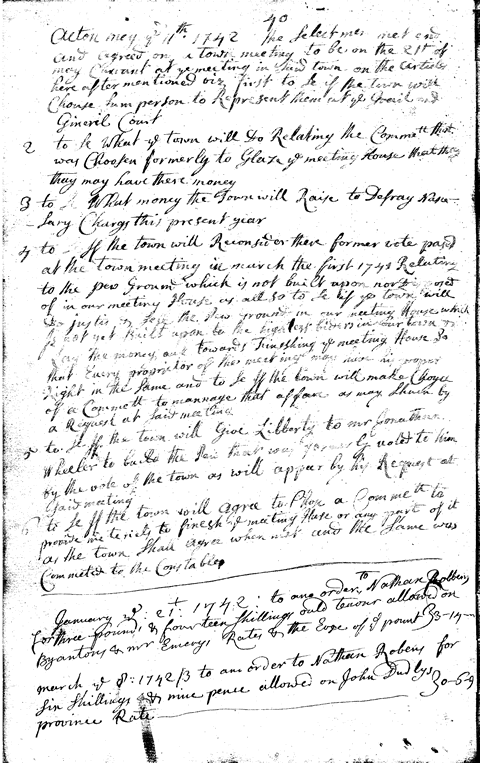 40
Acton mey ye 11th 1742 The Select men met and
and agreed on a town meeting to be on the 21st of
mey Currant at ye meeting in said town on the articles
here after mentioned viz first to se if the town will
Chouse sum person to Represent them at ye Great and
Gineril Court
2 to se What ye town will do Relating the Committ that
was Choosen formerly to Glaze ye meeting House that they
they may have there money
3 to se What money the Town will Raise to Defray Nesa-
sary Chargs this present year
4 to se If the town will Reconsider there former vote past
at the town meeting in march the first 1742 Relating
to the pew Ground which is not built upon nor disposed
of in our meeting House as all so to se if ye town will
the pew ground in our meeting House which
is not yet Built upon to the highest biders in our town
Lay the money out towards Fineshing ye meeting House so
that Every propriator of the meeting may have his proper
Right in the Same and to se If the town will make Choyce
of a Commett to mannage that affare as may shuch by
a Request at said meeting
5 to se If the town will Give Libberty to mr Jonathan
Wheeler to build the Pew that was voted to him
by the vote of the town as will appear by his Request at
said meeting
6 to se If the town will agree to Chose a Commett to
provide meteriels to finesh ye meeting House or any part of it
as the town Shall agree when met and the Same was
Commeted to the Constables
January ye 21st 1742 : to an order to Nathan Robbins
for three pound & fourteen shillings ould tenour allowed on
Byantons & mr Emerys Rates & the Expe of ye pound 3-14-
march ye 8: 1742/3 to an order to Nathan Robens for
Six Shillings & nine pence allowed on John Dudlys 0-6-9
province Rate